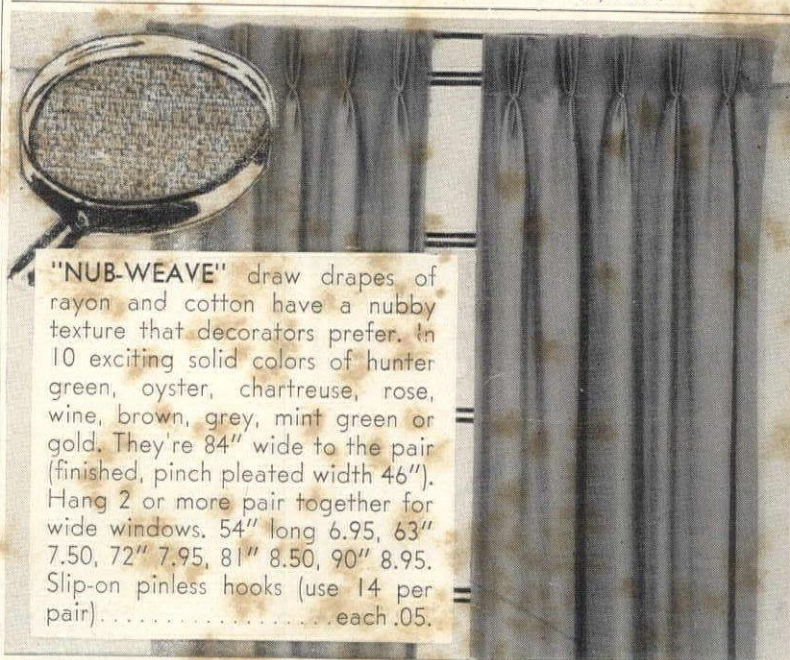 "NUB-WEAVE" draw drapes of
rayon and cotton have a nubby
texture that decorators prefer. In
10 exciting solid colors of hunter
green, oyster, chartreuse, rose,
wine, brown, grey, mint green or
gold. They're 84" wide to the pair
(finished, pinch pleated width 46").
Hang 2 or more pair together for
wide windows. 54" long 6.95, 63"
7.50, 72" 7.95, 81" 8.50, 90" 8.95.
Slip-on pinless hooks (use 14 per
pair)..................each .05.